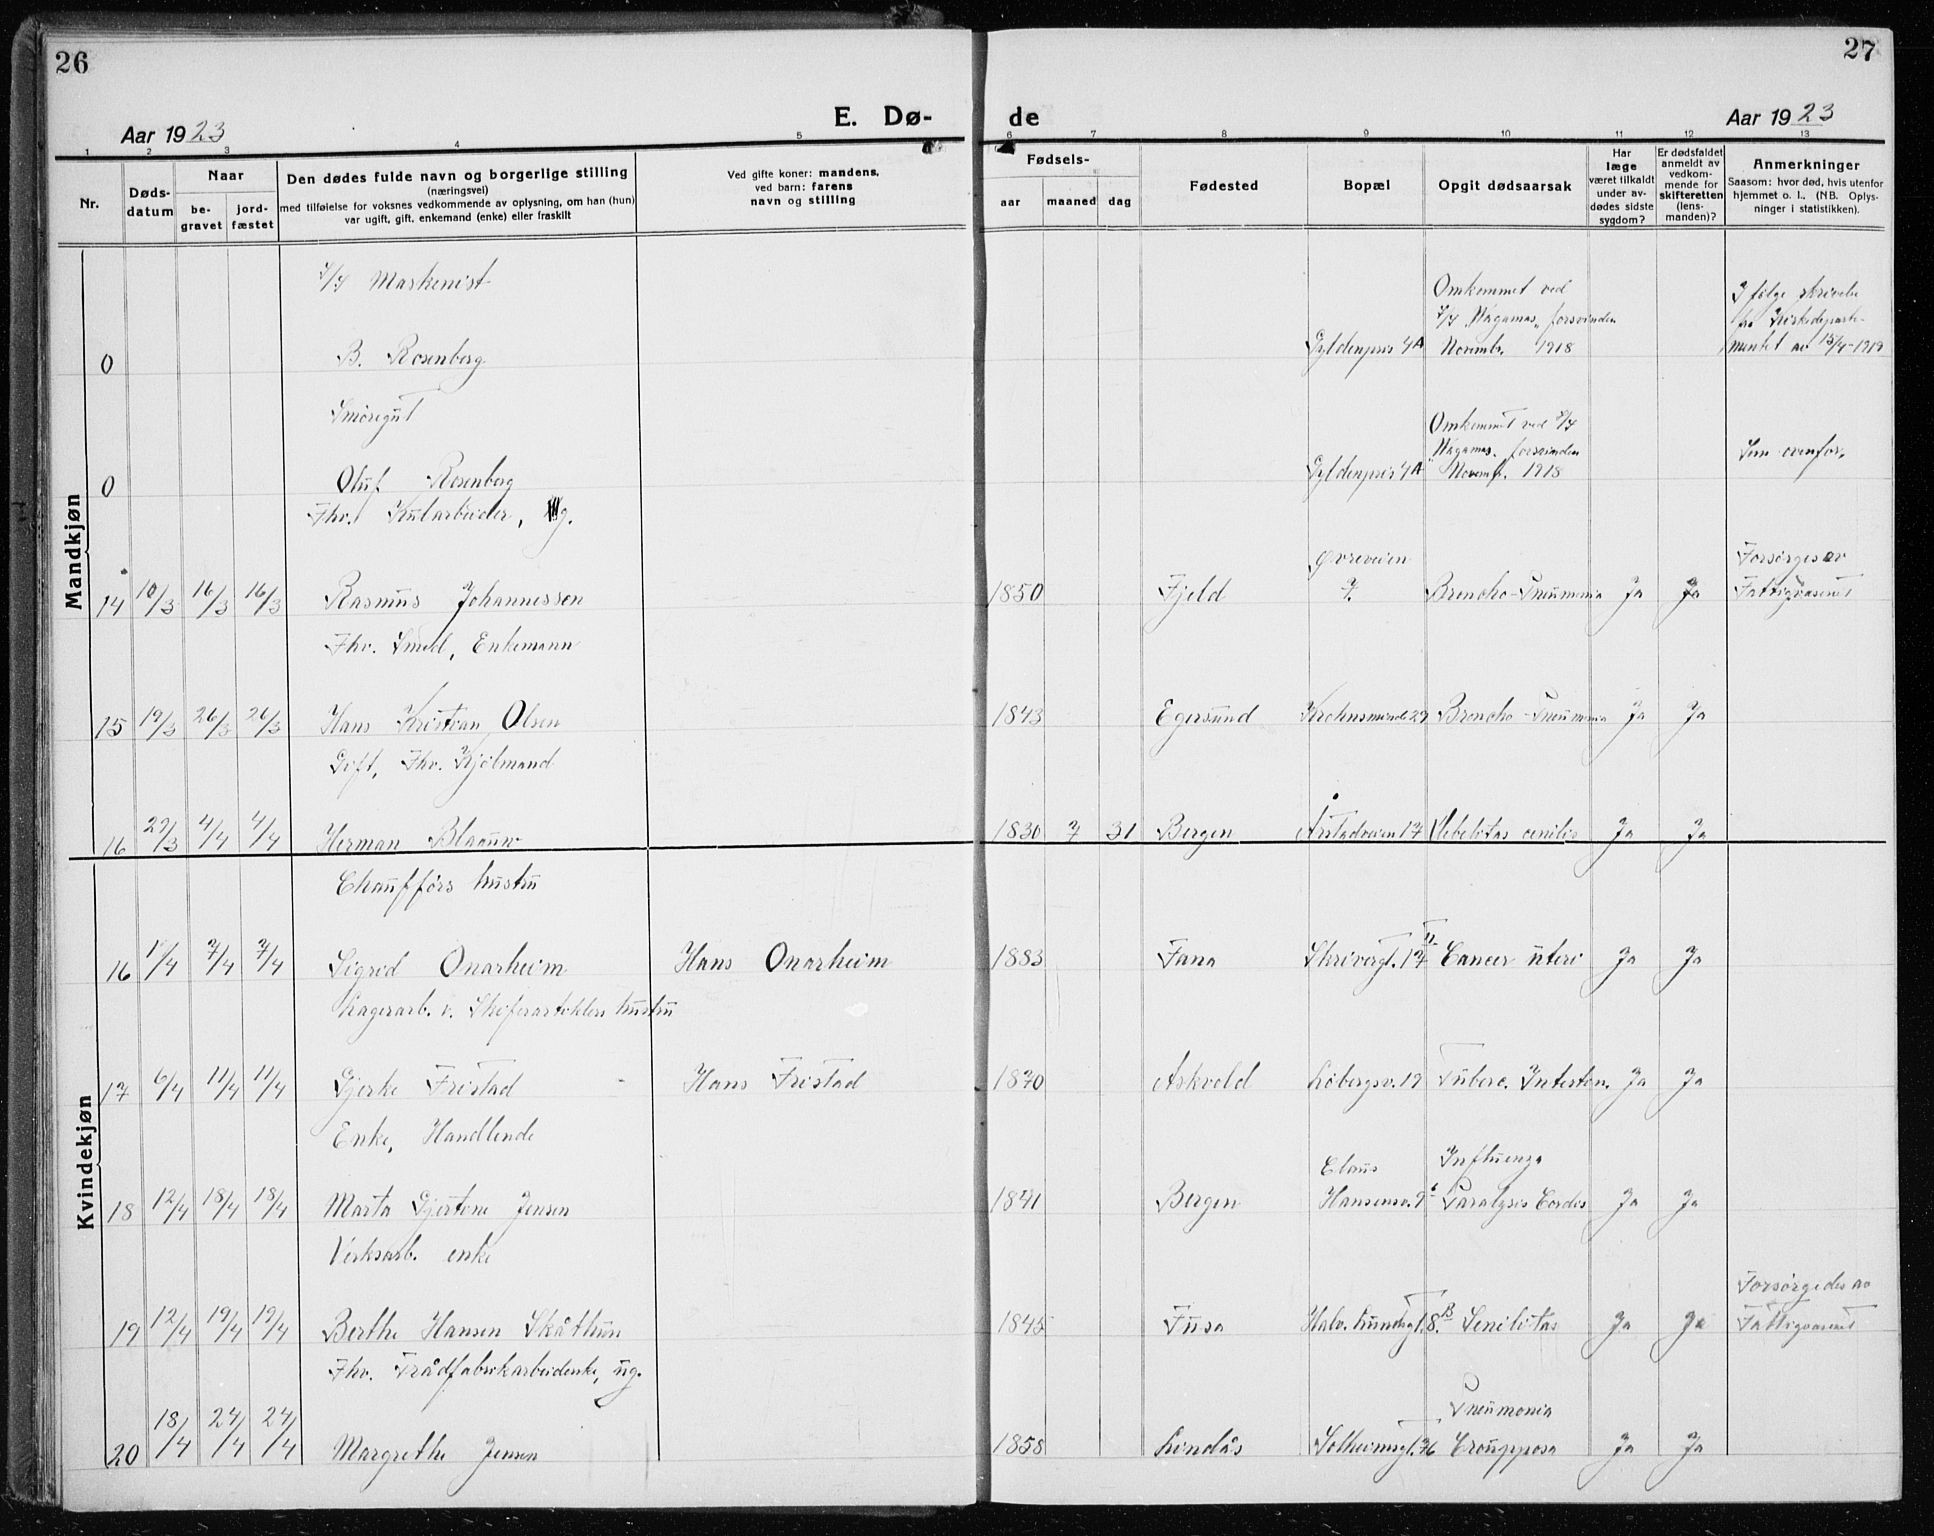 26
27
Aar 1923
E. Dø-
de
Aar 1923
1 2 3 4 5 6 7 8 9 10 11 12 13
Nr.
Døds-
datum
Naar
be-
gravet
jord-
fæstet
Den dødes fulde navn og borgerlige stilling
(næringsvei)
med tilføielse for voksnes vedkommende av oplysning, om han (hun)
var ugift, gift, enkemand (enke) eller fraskilt
Ved gifte koner: mandens,
ved barn: farens
navn og stilling
Fødsels-
aar maaned dag
Fødested
Bopæl
Opgit dødsaarsak
Har
læge
været tilkaldt
under av-
dødes sidste
sygdom?
Er dødsfaldet
anmeldt av
vedkom-
mende for
skifteretten
(lens-
manden)?
Anmerkninger
Saasom: hvor død, hvis utenfor
hjemmet o. l. (NB. Oplys-
ninger i statistikken).
Mandkjøn
Maskenist
Omkommet ved
I følge skrivelse
"Wagamas" forsvinden
fra Kirkedeparte-
0 B. Rosenberg Gyldenpris 4A Novembr. 1918 mentet av 15/4-1919
Smøregut
Omkommet ved
"Wagamas" forsvinden
Som ovenfor.
0 Oluf Rosenberg Gyldenpris 4A Novemb. 1918
Fhv. Kularbeider, ug.
Øvreveien
Forsørges av
14 10/3 16/3 16/3 Rasmus Johannessen 1850 Fjeld 7. Broncho-Pneumonia Ja Ja Fattigvæsenet
Fhv. Smed, Enkemann
15 19/3 26/3 26/3 Hans Kristian Olsen 1843 Egersund Krohnsminde 29 Broncho-Pneumonia Ja Ja
Gift, Fhv. Kjølmand
16 29/3 4/4 4/4 Herman Blaauw 1830 7 31 Bergen Årstadveien 17 Debelitas cenilis Ja Ja
Kvindekjøn
Chaufførs hustru
16 1/4 7/4 7/4 Sigrid Onarheim Hans Onarheim 1883 Fana Skrivergt. 17 II Cancer uteri Ja Ja
Lagerarb. v. Skiferartiklers hustru
17 6/4 11/4 11/4 Gjerke Fristad Hans Fristad 1870 Askvold Løbergsv. 19 Tuberc. Intestin. Ja Ja
Enke, Handlende
Claus
Influenza
18 12/4 18/4 18/4 Marta Gjertine Jensen 1841 Bergen Hansensv. 9 Paralysis Cordis Ja Ja
Verksarb. enke
Forsørgedes av
19 12/4 19/4 19/4 Berthe Hansen Skåthun 1845 Fusa 8B Senilitas Ja Ja Fattigvæsenet
Fhv. Trådfabrikarbeiderske, ug.
Pneumonia
20 18/4 24/4 24/4 Margrethe Jensen 1858 Lindås Solheimsgt. 76 Crouppøsa Ja Ja